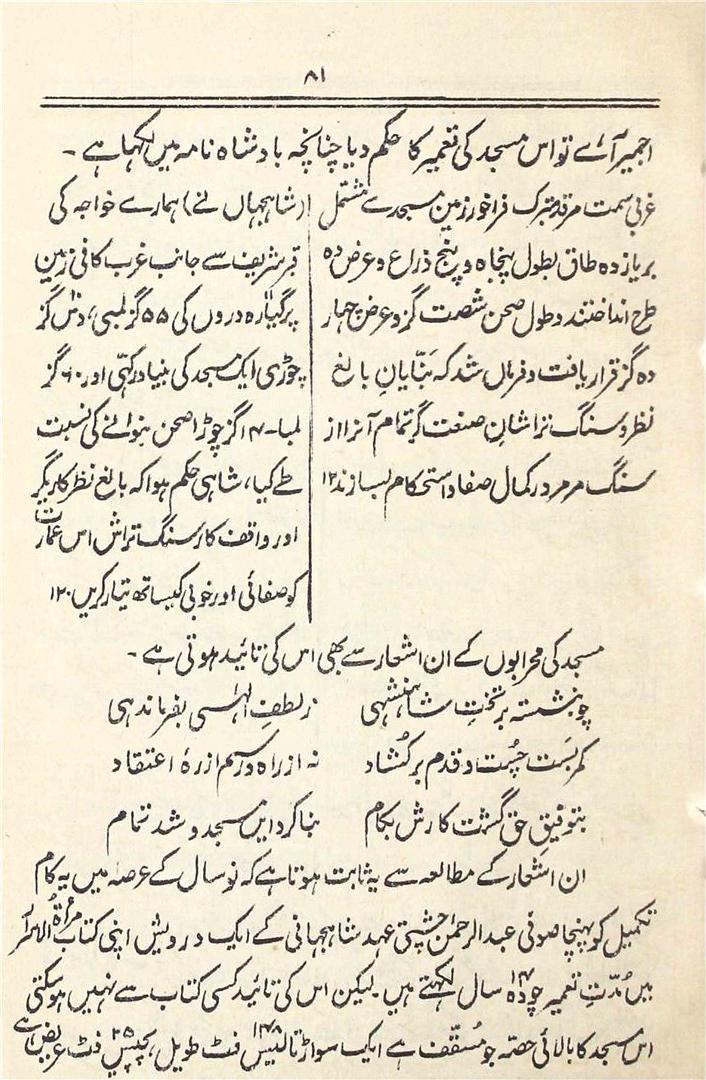 ۸۱
اجمیر آئے تو اس مسجد کی تعمیر کا حکم دیا چنانچہ بادشاہ نامہ میں لکہا ہے ۔
غربی سمت مرقد متبرک فراخور زمین مسجدے مشتمل
بر یازدہ طاق بطول پنجاہ و پنج ذراع و عرض دہ
طرح انداختند و طول صحن شصت گز و عرض چہار
دہ گز قرار یافت و فرمان شد کہ بنّایانِ بالغ
نظر و سنگ تراشانِ صنعت گر تمام آنرا از
سنگ مرمر در کمال صفا و استحکام بسازند ۱۲
(شاہجہاں نے) ہمارے خواجہ کی
قبر شریف سے جانب غرب کافی زمین
پر گیارہ دروں کی ۵۵ گز لمبی، دس گز
چوڑی ایک مسجد کی بنیاد رکہی اور ۶۰ گز
لمبا ۔ ۱۴ گز چوڑا صحن بنوانے کی نسبت
طے کیا، شاہی حکم ہوا کہ بالغ نظر کاریگر
اور واقف کار سنگ تراش اس عمارت
کو صفائی اور خوبی کیساتھ تیار کریں ۱۲۰
مسجد کی محرابوں کے ان اشعار سے بھی اس کی تائید ہوتی ہے ۔
چو بنشستہ بر تختِ شاہنشہی زلطفِ الٰہی بفرماندہی
کمر بَست چُست و قدم بر کُشاد نہ از راہ و رسم از رۂ اعتقاد
بتوفیق حق گشت کارش بکام بنا کرد ایں مسجد و شد تمام
ان اشعار کے مطالعہ سے یہ ثابت ہوتا ہے کہ نو سال کے عرصہ میں یہ کام
تکمیل کو پہنچا صوفی عبدالرحمن چشتی عہد شاہجہانی کے ایک درویش اپنی کتاب مرأۃُ الاسرار
میں مُدّتِ تعمیر چودہ ۱۴ سال لکھتے ہیں ۔ لیکن اس کی تائید کسی کتاب سے نہیں ہو سکتی
اس مسجد کا بالائی حصّہ جو مُسقّف ہے ایک سو اڑتالیس ۱۴۸ فٹ طویل، پچیس ۲۵ فٹ عریض ہے